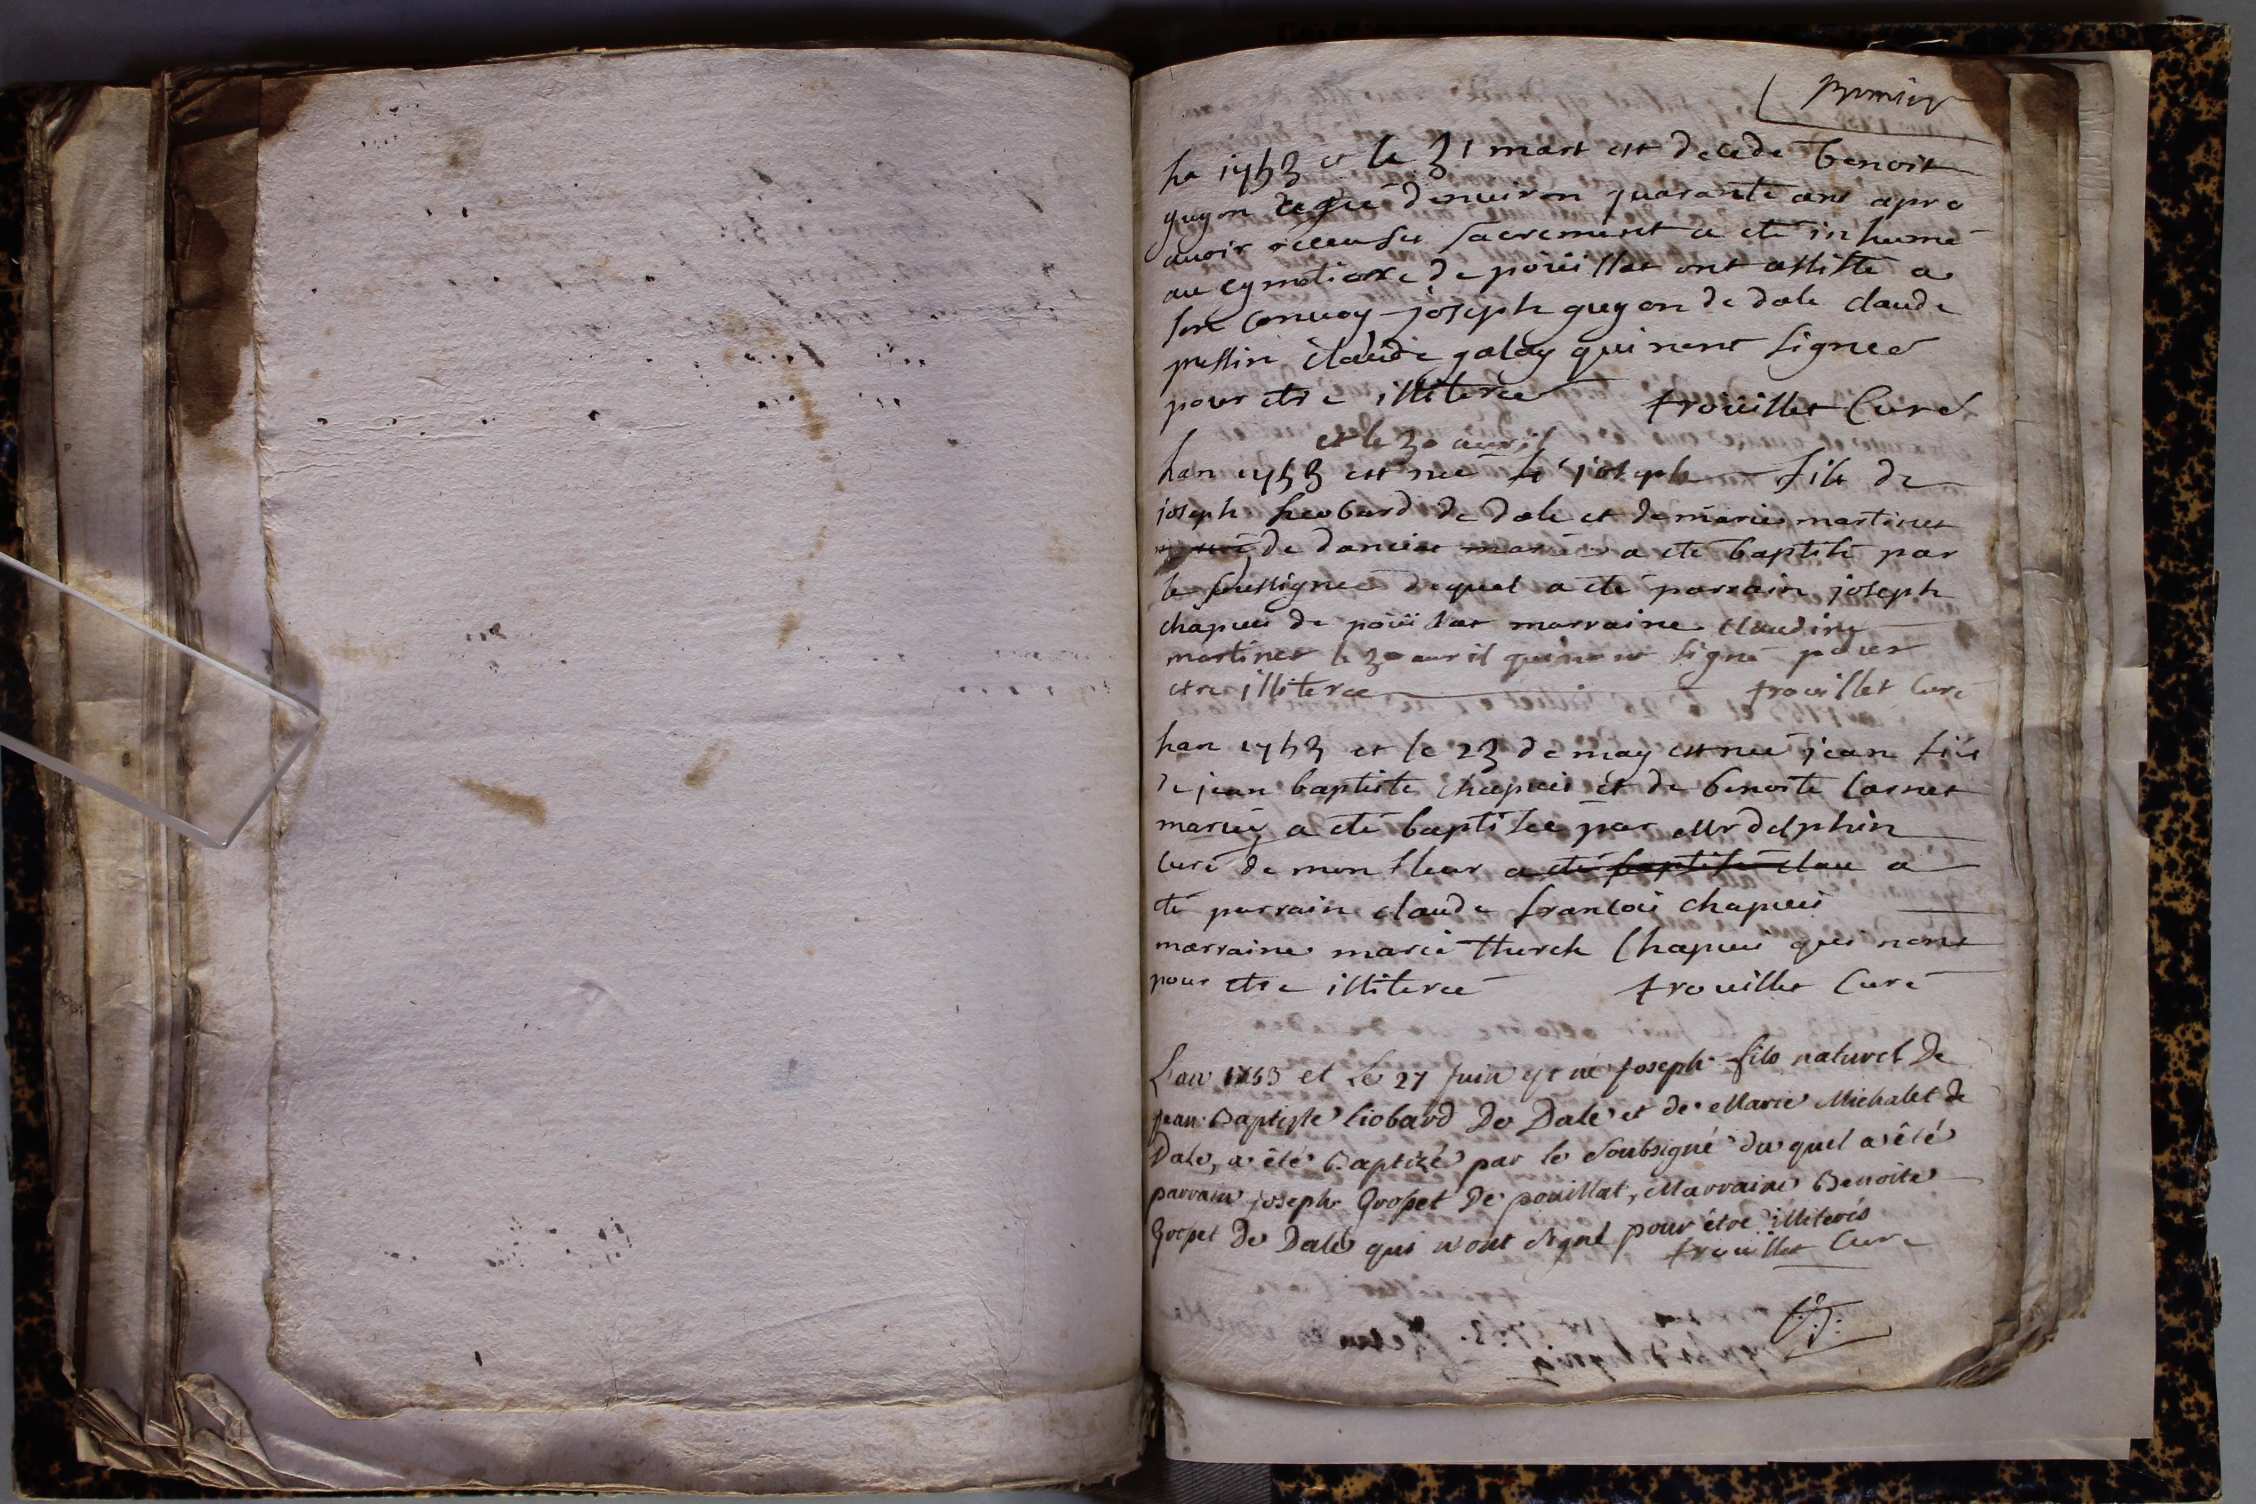 premier
lan 1753 et le 31 mars est decede benoit
guyon agé denuiron quarante ans apres
auoir receu ses sacrement a eté inhumé
au cymetiere de poüillat ont assisté a
son conuoy joseph guyon de dale claude
pussin claude galay qui nont signes
pour etre illiteres troüillet Curé
et le 30 auril
lan 1753 est né joseph fils de
joseph lieobard de dale et de marie martinet
de dancia mariés a eté baptisé par
le soussigné duquel a eté parrain joseph
chapuis de poüillat marraine claudine
martinet le 30 auril qui nont signé pour
etre illiteres trouillet Curé
lan 1753 et le 23 de may est né jean fils
de jean baptiste chapuis et de benoite Carret
mariés a eté baptisée par Mr delphin
Curé de monfleur a eté baptisé clau a
eté parrain claude francois chapuis
marraine marie Chapuis qui nont
pour etre illiteré trouillet Curé
L'an 1753 et Le 27 Juin est né joseph fils naturel De
jean Baptiste liobard De Dale et de Marie Michalet de
Dale, a êté Baptizé par le Soubsigné du quel a êté
parrain joseph Gropet De pouillat, Marraine Benoite
Gropet De Dale qui n'ont Signé pour être illiterés
trouillet Curé